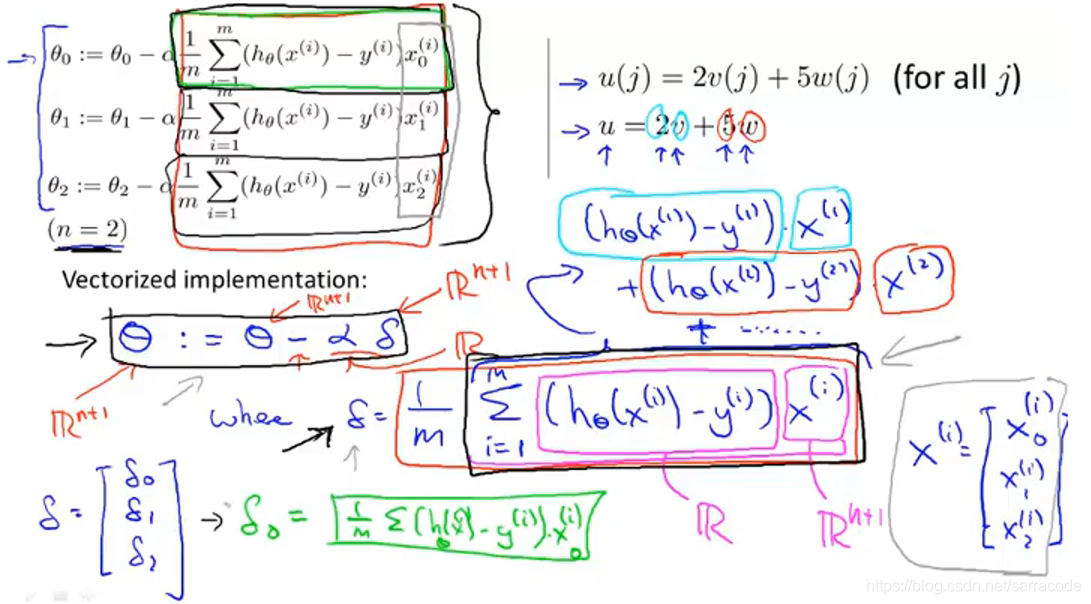 θ₀ := θ₀ − α 1/m ∑_{i=1}^{m} (h_θ(x^{(i)}) − y^{(i)}) x₀^{(i)}
θ₁ := θ₁ − α 1/m ∑_{i=1}^{m} (h_θ(x^{(i)}) − y^{(i)}) x₁^{(i)}
θ₂ := θ₂ − α 1/m ∑_{i=1}^{m} (h_θ(x^{(i)}) − y^{(i)}) x₂^{(i)}
(n = 2)
→ u(j) = 2v(j) + 5w(j) (for all j)
→ u = 2v + 5w
(h_θ(x^{(1)}) − y^{(1)}) · x^{(1)}
+ (h_θ(x^{(2)}) − y^{(2)}) x^{(2)}
+ ........
Vectorized implementation:
ℝ^{n+1} ℝ^{n+1}
→ θ := θ − α δ
ℝ^{n+1} ℝ
where → δ = 1/m ∑_{i=1}^{m} (h_θ(x^{(i)}) − y^{(i)}) x^{(i)}
ℝ ℝ^{n+1}
x^{(i)} = [x₀^{(i)} x₁^{(i)} x₂^{(i)}]
δ = [δ₀ δ₁ δ₂] → δ₀ = 1/m ∑ (h_θ(x^{(i)}) − y^{(i)}) · x₀^{(i)}
https://blog.csdn.net/sarracode